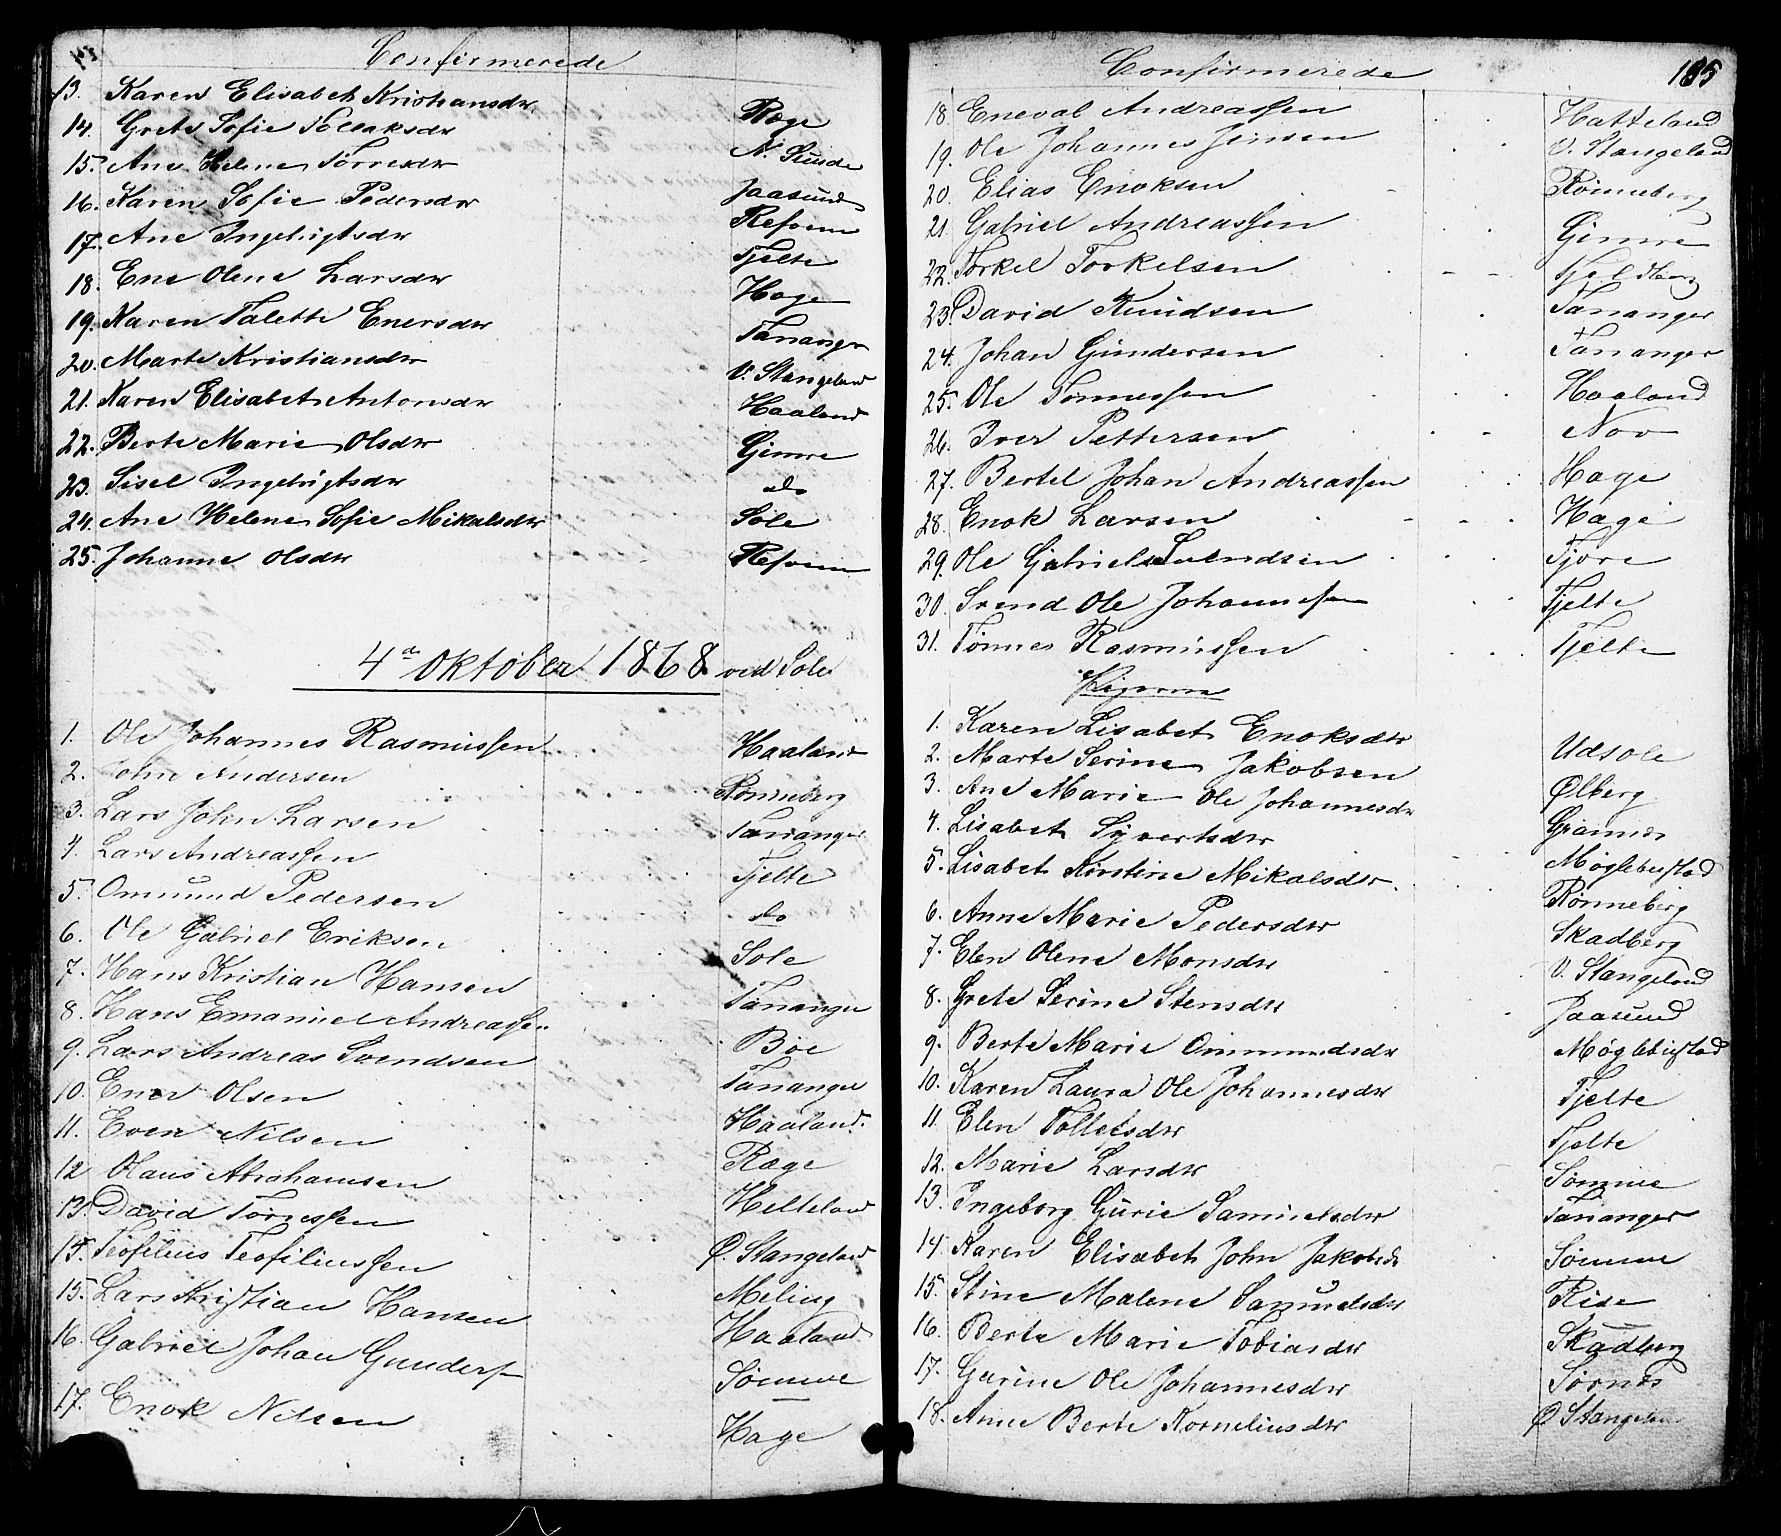 Confirmerede
13. Karen Elisabet Kristiansdtr Ræge
14. Grete Sofie Tollaksdtr N. Sunde
15. Ane Helene Torresdtr Jaasund
16. Karen Sofie Pedersdtr Refsem
17. Ane Ingebrigtsdtr Tjelte
18. Ene Olene Larsdtr Hage
19. Karen Talette Enersdtr Tananger
20. Marte Kristiansdtr V. Stangeland
21. Karen Elisabet Antonsdtr Haaland
22. Berte Marie Olsdtr Gimre
23. Sisel Ingebrigtsdtr do
24. Ane Helene Sofie Mikalsdtr Sole
25. Johanne Olsdtr Refsem
4de Oktober 1868 ved Sole
1. Ole Johannes Rasmussen Haaland
2. John Andersen Rønneberg
3. Lars John Larsen Tananger
4. Lars Andreassen Tjelte
5. Ommund Pedersen do
6. Ole Gabriel Eriksen Sole
7. Hans Kristian Hansen Tananger
8. Hans Emanuel Andreassen Bøe
9. Lars Andreas Svendsen Tananger
10. Ener Olsen Haaland
11. Even Nilsen Ræge
12 Olaus Abrahamsen Helleland
13. David Tørresen Ø. Stangeland
14. Teofilius Teofiliussen Meling
15. Lars Kristian Hansen Haaland
16. Gabriel Johan Gunders Sømme
17. Enok Nilsen Hage
Confirmerede 185
18 Eneval Andreassen Hatteland
19. Ole Johannes Jensen V. Stangeland
20. Elias Enoksen Rønneberg
21. Gabriel Andreassen Gimre
22. Torkel Torkelsen Tjeldberg
23. David Knudsen Tananger
24. Johan Gundersen Tananger
25. Ole Tønnessen Haaland
26. Iver Pettersen Nov
27. Bertel Johan Andreassen Hage
28. Enok Larsen Hage
29. Ole Gabriel Svendsen Tjore
30. Svend Ole Johannessen Tjelte
31. Tønnes Rasmussen Tjelte
Pigerne
1. Karen Lisabet Enoksdtr Udsole
2. Marte Serine Jakobsen Ølberg
3. Ane Marie Ole Johannesdtr Grannes
4. Lisabet Syvertsdtr Møglebustad
5. Lisabet Kirstine Mikalsdtr Rønneberg
6. Anne Marie Pedersdtr Skadberg
7. Elen Olene Monsdtr V. Stangeland
8. Grete Serine Stensdtr Jaasund
9. Berte Marie Ommundsdtr Møglebustad
10. Karen Laura Ole Johannesdtr Tjelte
11. Elen Tollefsdtr Tjelte
12. Marie Larsdtr Sømme
13. Ingeborg Gurie Samuelsdtr Tananger
14. Karen Elisabet John Jakobsd Sømme
15. Stine Malene Samuelsdtr Risе
16. Berte Marie Tobiasdtr Skadberg
17. Gurine Ole Johannesdtr Sørnes
18. Anne Berte Korneliusdtr Ø Stangeland